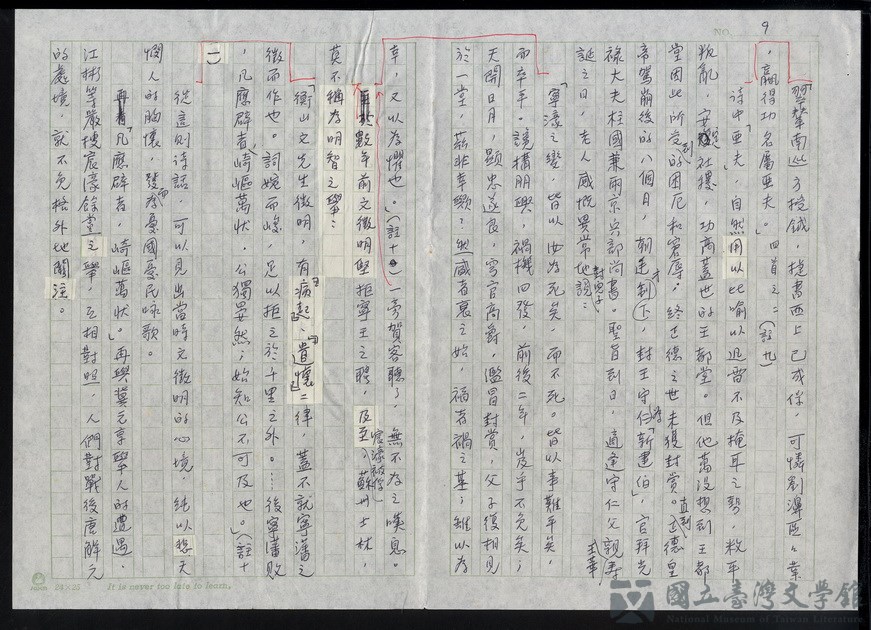 9
NO.
翠華南巡方授鉞,捷書西上已成俘,可憐劉濞區區業
,贏得功名屬亞夫。 四首之二(註九)
詩中「亞夫」,自然用以比喻以迅雷不及掩耳之勢,敉平
叛亂,安定社稷,功高蓋世的王都堂。但他萬沒想到王都
堂因此所受到的困厄和窘辱。終正德之世未獲封賞。直到正德皇
帝駕崩後的八個月,朝廷才下制,封王守仁為「新建伯」,官拜光
祿大夫柱國兼兩京兵部尚書。聖旨到日,適逢守仁父親王華壽
誕之日,老人感慨異常地對兒子說:
「寧濠之變,皆以汝為死矣,而不死。皆以事難平矣,
而卒平。讒構朋興,禍機四發,前後二年,岌乎不免矣;
天開日月,顯忠遂良,穹官高爵,濫冒封賞,父子復相見
於一堂,茲非幸歟!然盛者衰之始,福者禍之基;雖以為
幸,又以為懼也。」(註十)一旁賀客聽了,無不為之嘆息。
數年前文徵明堅拒寧王之聘,及至宸濠被俘,蘇州士林,
莫不稱為明智之舉:
「衡山文先生徵明,有『病起』、『遣懷』二律,蓋不就寧藩之
徵而作也。詞婉而峻,足以拒之於千里之外。……後寧藩敗
,凡應辟者,崎嶇萬狀,公獨晏然;始知公不可及也。」(註十
一)
從這則詩話,可以見出當時文徵明的心境,純以悲天
憫人的胸懷,發而為憂國憂民咏歌。
「凡應辟者,崎嶇萬狀。」再與冀元亨舉人的遭遇,
江彬等嚴搜宸濠餘黨之舉,互相對照,人們對戰後唐解元
的處境,就不免格外地關注。
24×25
It is never too late to learn.
國立臺灣文學館
National Museum of Taiwan Literature